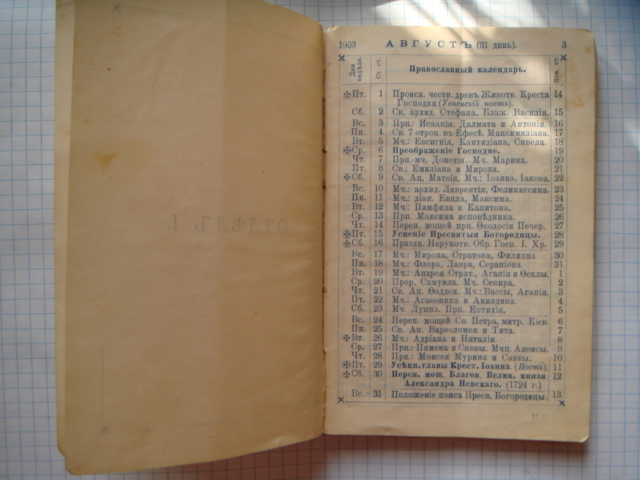 1903 АВГУСТЪ (31 день). 3
Дни недѣли. Ст. ст. Православный календарь. Нов. ст.
✠Пт. 1 Происх. чести. древ. Животв. Креста 14
Господня (Успенскій постъ).
Сб. 2 Св. архид. Стефана. Блаж. Василія. 15
Вс. 3 Прп.: Исаакія, Далмата и Антонія. 16
Пн. 4 Св. 7 отрок. въ Ефесѣ. Максимиліана. 17
Вт. 5 Мч.: Евсигнія, Кантидіана, Сивела. 18
✠Ср. 6 Преображеніе Господне. 19
Чт. 7 Прп.-мч. Дометія. Мч. Марина. 20
Пт. 8 Св.: Емиліана и Мирона. 21
✠Сб. 9 Св. Ап. Матѳія. Мч.: Іоанна, Іакова. 22
Вс. 10 Мч.: архид. Лаврентія, Феликиссима. 23
Пн. 11 Мч.: діак. Евпла, Максима. 24
Вт. 12 Мч.: Памфила и Капитона. 25
Ср. 13 Прп. Максима исповѣдника. 26
Чт. 14 Перен. мощей прп. Ѳеодосія Печер. 27
✠Пт. 15 Успеніе Пресвятыя Богородицы. 28
✠Сб. 16 Праздн. Нерукотв. Обр. Госп. І. Хр. 29
Вс. 17 Мч.: Мирона, Стратона, Филиппа 30
Пн. 18 Мч.: Флора, Лавра, Серапіона 31
Вт. 19 Мч.: Андрея Страт., Агапія и Ѳеклы. 1
Ср. 20 Прор. Самуила. Мч. Севира, 2
Чт. 21 Св. Ап. Ѳаддея. Мч.: Вассы, Агапія. 3
Пт. 22 Мч.: Агаѳоника и Анѳидика. 4
Сб. 23 Мч. Луппа. Прп. Евтихія, 5
Вс. 24 Перен. мощей Св. Петра, митр. Кіев. 6
Пн. 25 Св. Ап. Варѳоломея и Тита. 7
✠Вт. 26 Мч.: Адріана и Наталіи. 8
Ср. 27 Прп.: Пимена и Саввы. Мчц. Анѳисы. 9
Чт. 28 Прп.: Моисея Мурина и Саввы. 10
✠Пт. 29 Усѣкн. главы Крест. Іоанна. (Постъ). 11
✠Сб. 30 Перен. мощ. Благов. Велик. князя 12
Александра Невскаго. (1724 г.)
Вс. 31 Положеніе пояса Пресв. Богородицы. 13
ОТДѢЛЪ I.